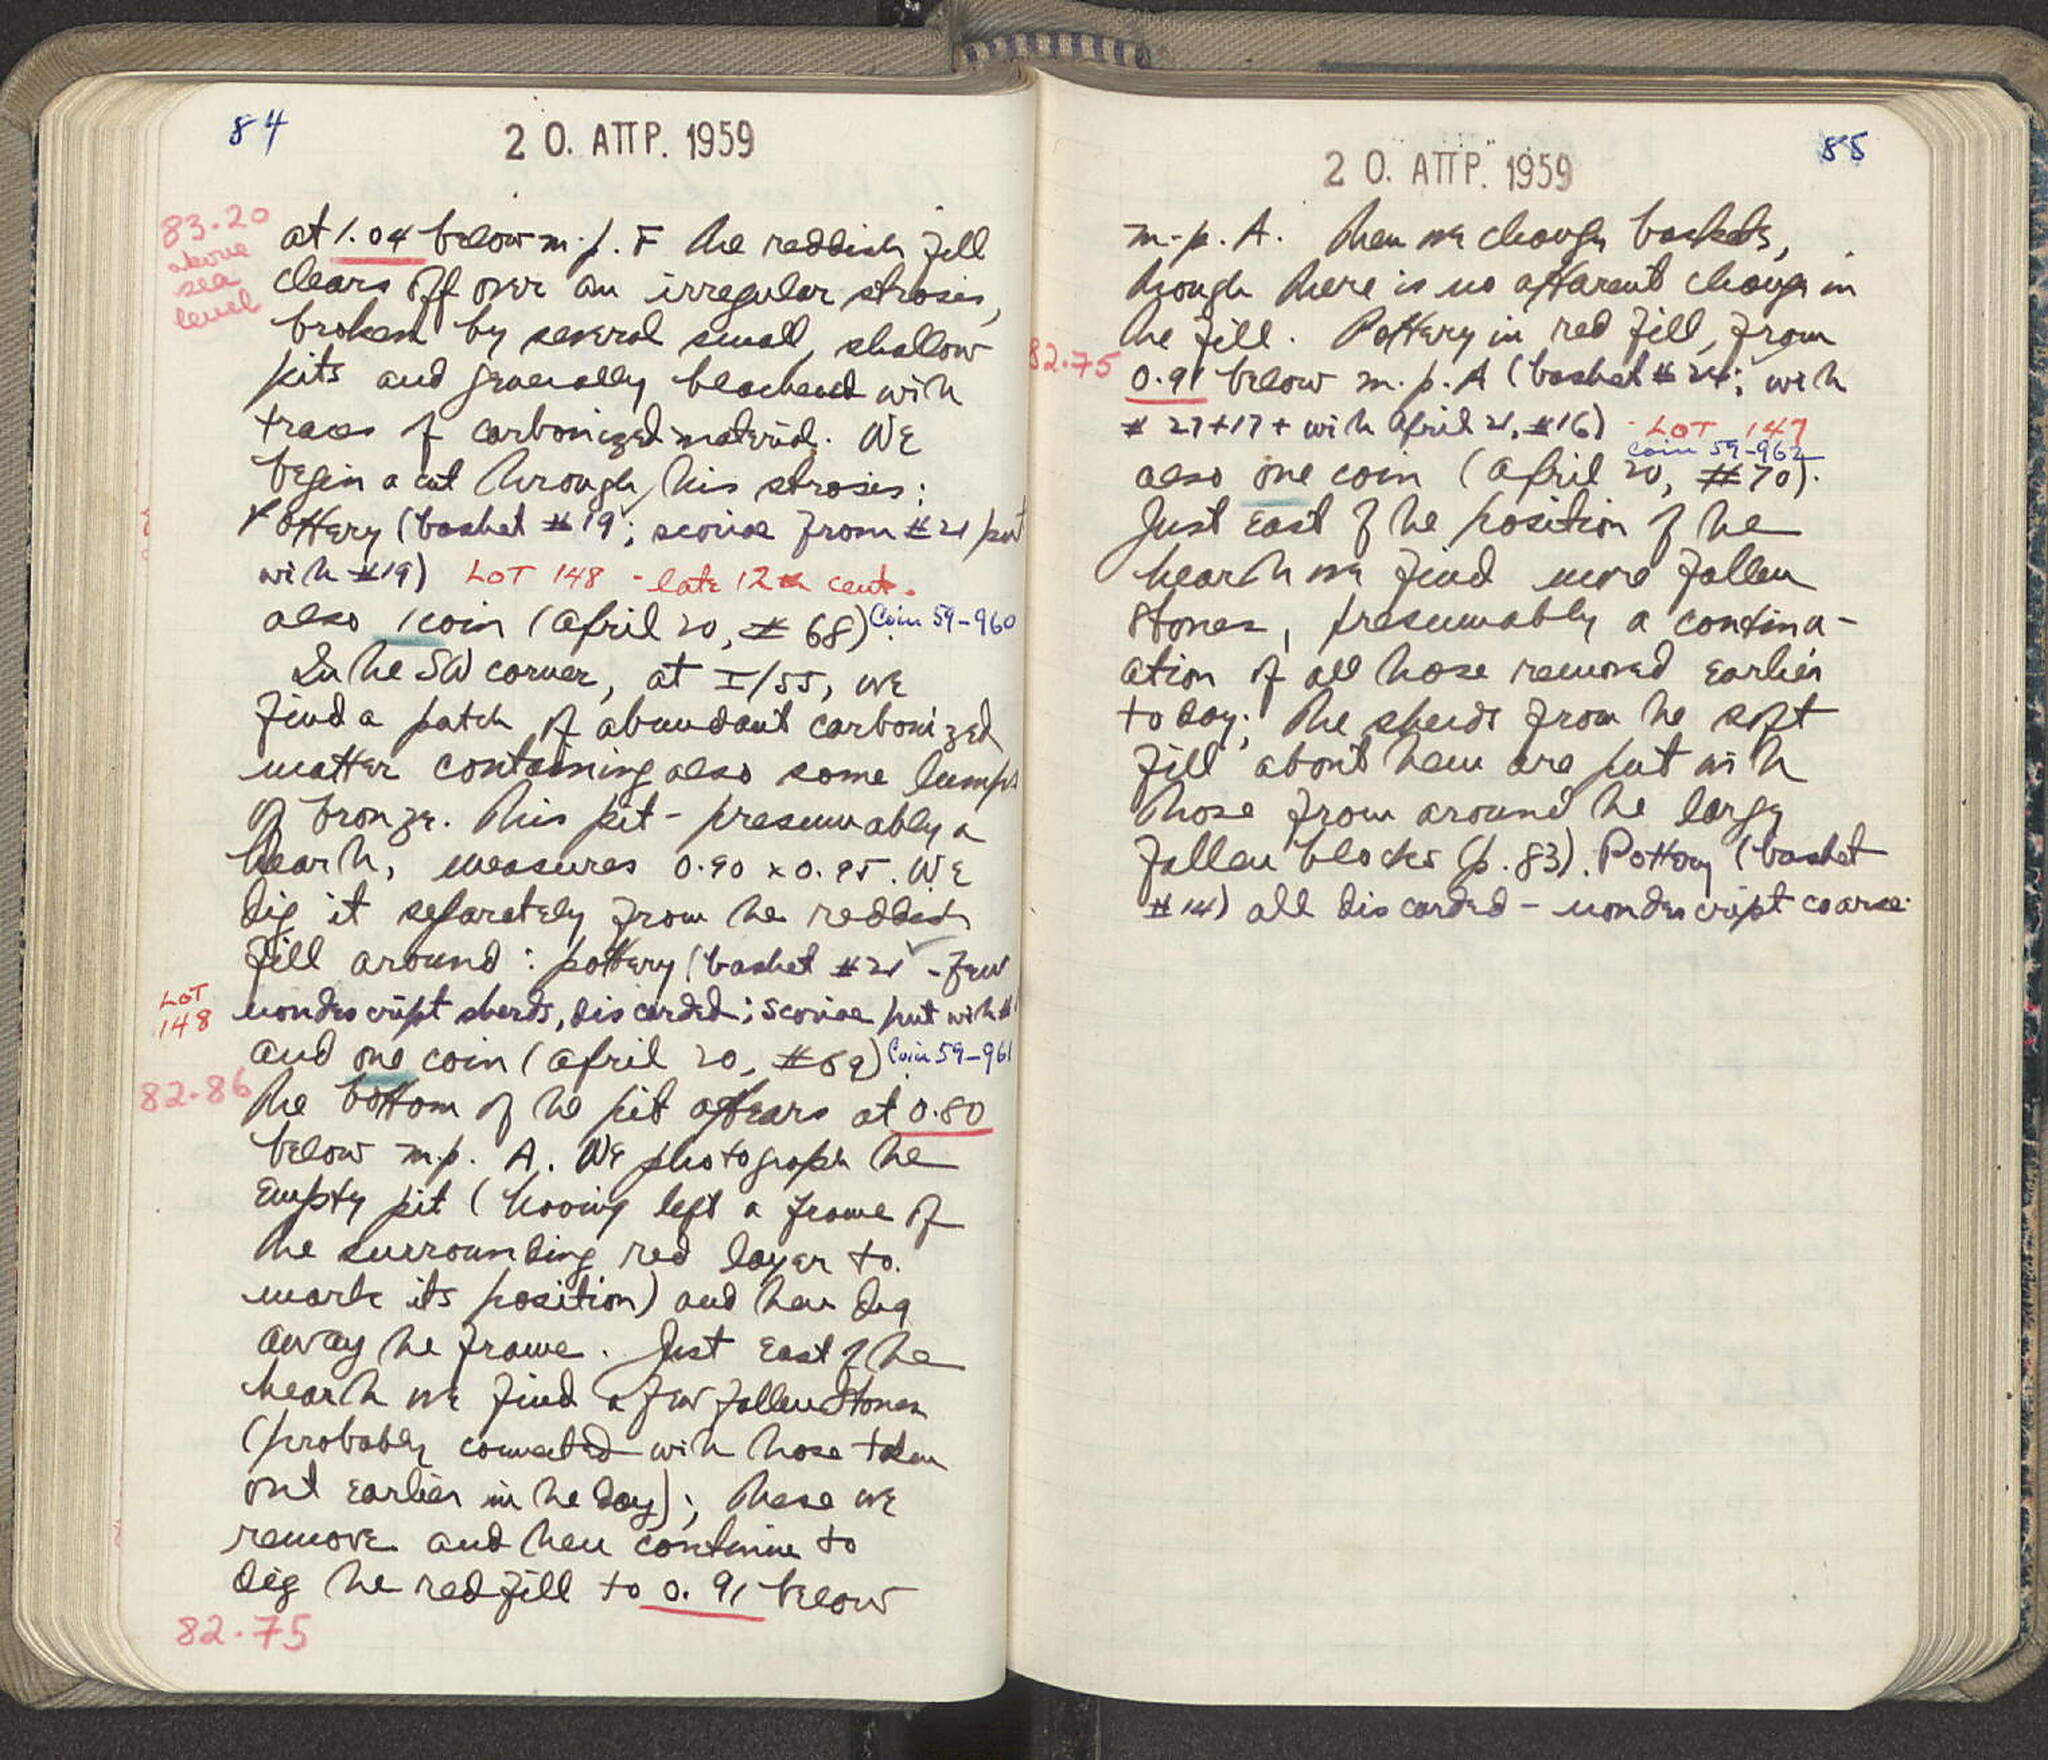 84
20. ΑΠΡ. 1959
83.20
above
sea
level
at 1.04 below m.p. F the reddish fill
clears off over an irregular strosis,
broken by several small, shallow
pits and generally blackened with
traces of carbonized material. We
begin a cut through this strosis:
Pottery (basket #19; scoriae from #21 put
with #19) LOT 148 - late 12th cent.
also 1 coin (April 20, #68) Coin 59-960
In the SW corner, at I/55, we
find a patch of abundant carbonized
matter containing also some lumps
of bronze. This pit - presumably a
hearth, measures 0.90 x 0.95. We
dig it separately from the reddish
fill around: pottery (basket #21 - few
LOT
148
nondescript sherds, discarded; scoriae put with #
and one coin (April 20, #69) Coin 59-961
82.86
The bottom of the pit appears at 0.80
below m.p. A. We photograph the
empty pit (having left a frame of
the surrounding red layer to
mark its position) and then dig
away the frame. Just East of the
hearth we find a few fallen stones
(probably connected with those taken
out earlier in the day); these we
remove and then continue to
dig the red fill to 0.91 below
82.75
85
20. ΑΠΡ. 1959
m.p. A. Then we change baskets,
though there is no apparent change in
the fill. Pottery in red fill, from
82.75
0.91 below m.p. A (basket #24; with
#27+17+ with April 21, #16) - LOT 147
Coin 59-962
also one coin (April 20, #70).
Just East of the position of the
hearth we find more fallen
stones, presumably a continu-
ation of all those removed earlier
today; the sherds from the soft
fill about them are put with
those from around the large
fallen blocks (p. 83). Pottery (basket
#14) all discarded - nondescript coarse.